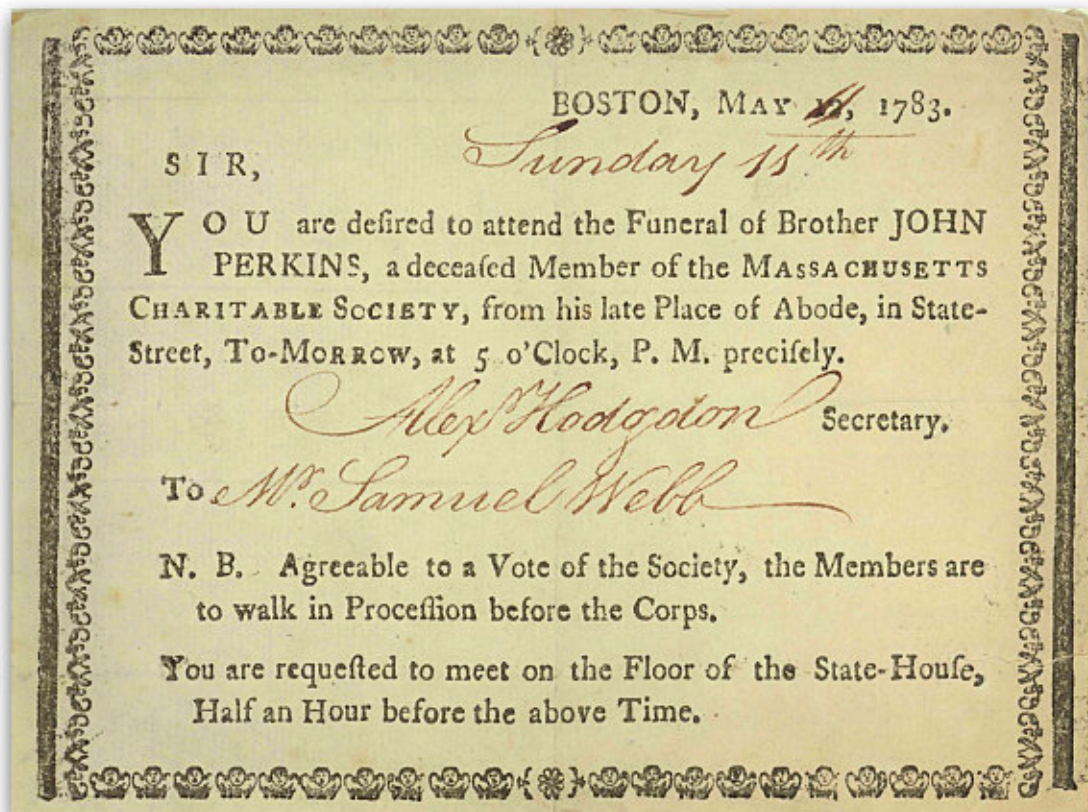 BOSTON, MAY 12, 1783.
Sunday 11th
SIR,
YOU are deſired to attend the Funeral of Brother JOHN
PERKINS, a deceaſed Member of the MASSACHUSETTS
CHARITABLE SOCIETY, from his late Place of Abode, in State-
Street, TO-MORROW, at 5 o'Clock, P. M. preciſely.
Alexr Hodgdon Secretary.
To Mr. Samuel Webb
N. B. Agreeable to a Vote of the Society, the Members are
to walk in Proceſſion before the Corps.
You are requeſted to meet on the Floor of the State-Houſe,
Half an Hour before the above Time.